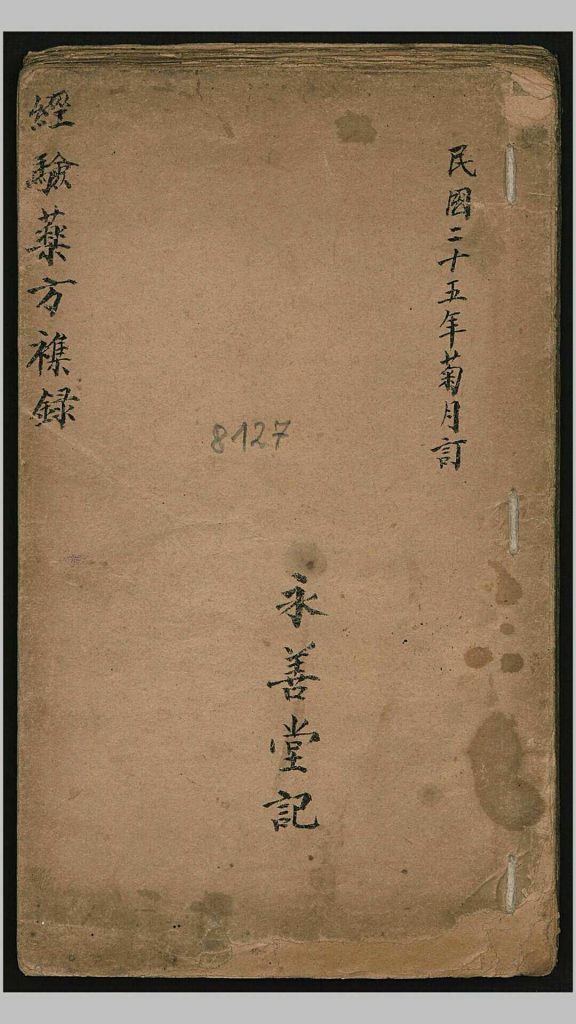 民國二十五年菊月訂
8127
永善堂記
經驗藥方襍録